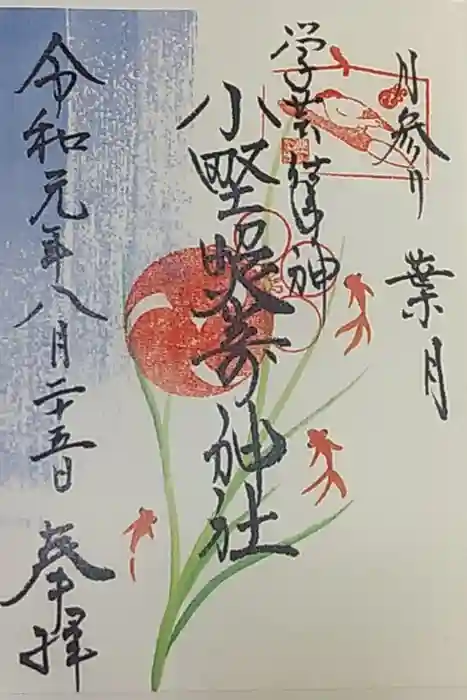 月参り 葉月
学芸 神
小野照崎神社
令和元年八月二十五日 奉拝